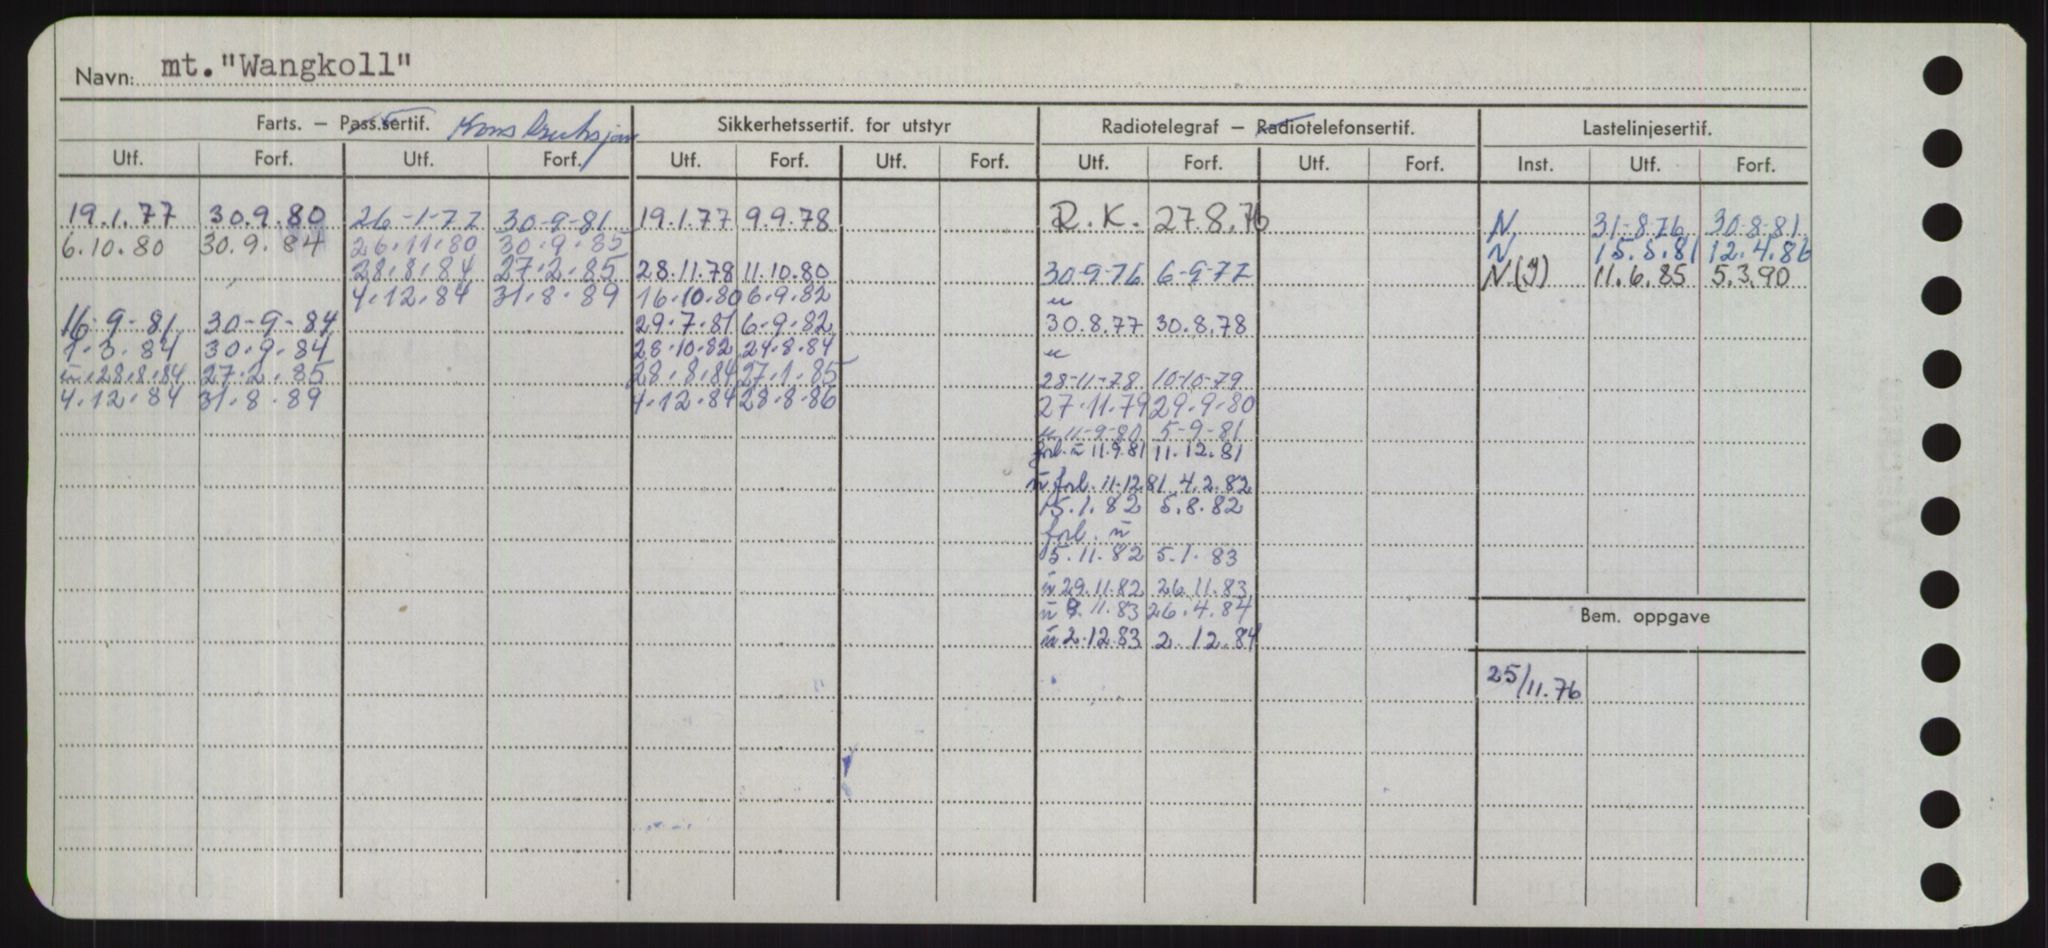 Navn: mt. "Wangkoll"
Farts. – Pass.sertif. Konstruksjon Sikkerhetssertif. for utstyr Radiotelegraf – Radiotelefonsertif. Lastelinjesertif.
Utf. Forf. Utf. Forf. Utf. Forf. Utf. Forf. Utf. Forf. Utf. Forf. Inst. Utf. Forf.
19.1.77 30.9.80 26-1-77 30-9-81 19.1.77 9.9.78 R.K. 27.8.76 N. 31-8-76 30-8-81
6.10.80 30.9.84 26.11.80 30.9.85 N 15.5.81 12.4.86
28.8.84 27.2.85 28.11.78 11.10.80 30-9-76 6-9-77 N.(J) 11.6.85 5.3.90
4.12.84 31.8.89 16.10.80 6.9.82 u
16-9-81 30-9-84 29.7.81 6-9.82 30.8.77 30.8.78
1.3.84 30.9.84 28.10.82 24.8.84 u
u.28.8.84 27.2.85 28.8.84 27.1.85 28-11-78 10-10-79
4.12.84 31.8.89 4.12.84 28.8.86 27.11.79 29.9.80
u 11-9-80 5-9-81
forl. u 11.9.81 11.12.81
u forl. 11-12 81 4.2.82
15.1.82 5.8.82
forl. u
5.11.82 5.1.83
u 29.11.82 26.11.83
u 9.11.83 26.4.84
Bem. oppgave
u 2.12.83 2.12.84
25/11.76